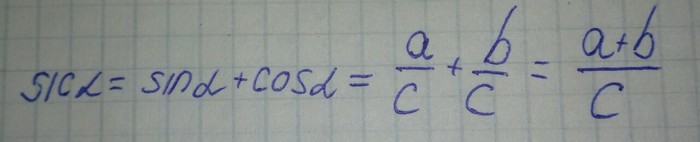 sicα = sinα + cosα = a/c + b/c = a+b/c